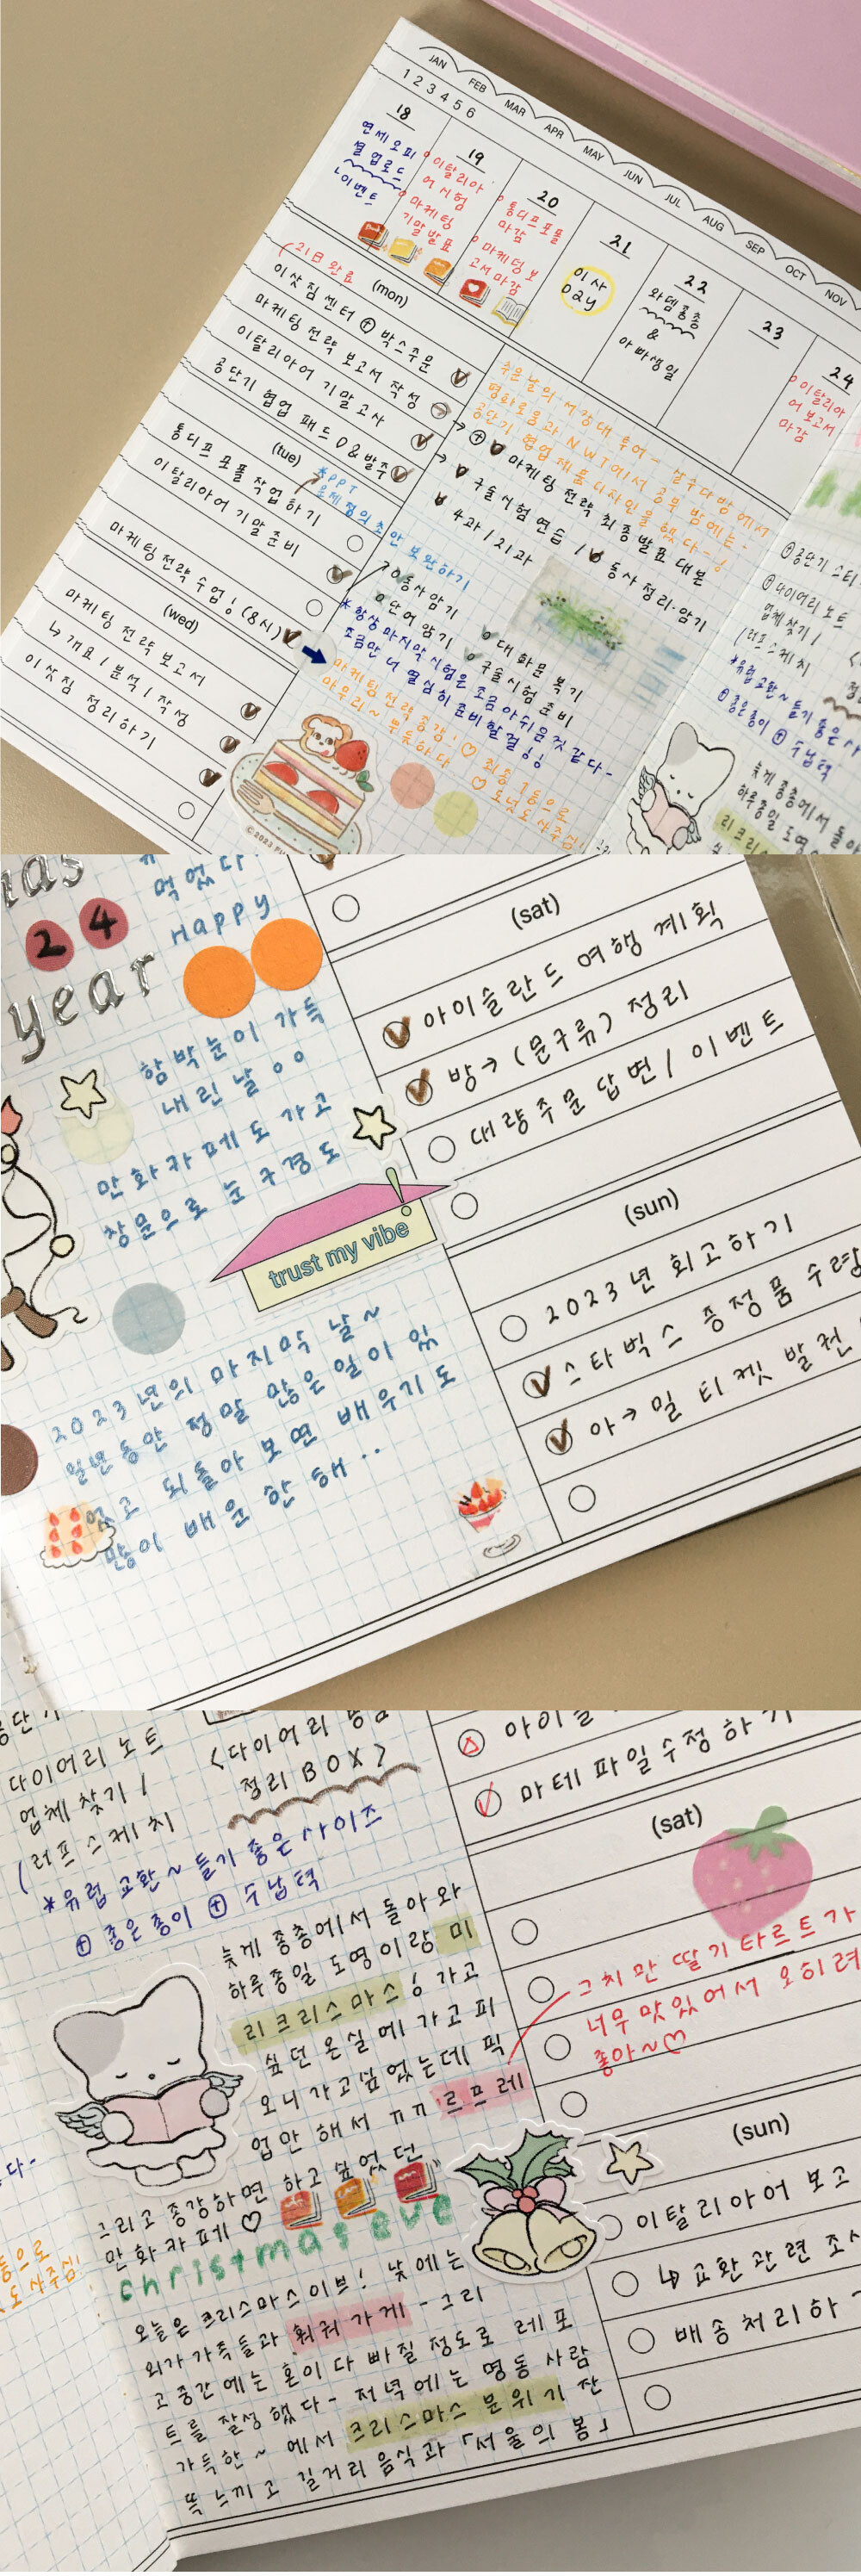 JAN FEB MAR APR MAY JUN JUL AUG SEP OCT NOV
1 2 3 4 5 6
18
연세 오피
셜 업로드
이벤트
19
이탈리아
어 시험
마케팅
기말 발표
20
통디프 포폴
마감
마케팅 보
고서 마감
21
이사
DAY
22
와뎀종종
&
아빠생일
23
24
이탈리아
어 보고서
마감
21日 완료
(mon)
이삿짐센터 + 박스주문
마케팅 전략 보고서 작성
이탈리아어 기말고사
공단기 협업 패드 D & 발주
(tue)
통디프 포폴 작업하기
이탈리아어 기말 준비
마케팅 전략 수업! (8시)
(wed)
마케팅 전략 보고서
↳ 개표 / 분석 / 작성
이삿짐 정리하기
*PPT
초안 보완하기
추운 날의 서강대 투어 -
평화로움과 NWT에서 공부 밤에는 -
공단기 협업 제품 디자인을 했다 - !
→ + 마케팅 전략 최종발표 대본
→ 구술시험 연습 / 동사 정리·암기
4과 / 21과
동사암기
단어 암기
대화문 복기
구술시험 준비
*항상 마지막 시험은 조금 아쉬운 것 같다 -
조금만 더 열심히 준비할걸!!
마케팅 전략 종강! ♡ 최종 1등으로
마무리~ 뿌듯하다 ♡ 도넛도 사주심!
© 2023
공단기 스티
다이어리 노트
업체 찾기 /
(러프 스케치
*유럽 교환~ 들기 좋은 사
좋은 종이 + 수납력
늦게 종총에서 돌아
하루종일 도영
리크리스
24
year
먹었다
HAPPY
함박눈이 가득
내린 날
만화카페도 가고
창문으로 눈구경도
trust my vibe!
2023년의 마지막 날~
일년동안 정말 많은 일이 있
었고 되돌아 보면 배우기도
많이 배운 한 해..
(sat)
아이슬란드 여행 계획
방→ (문구류) 정리
대량주문 답변 / 이벤트
(sun)
2023년 회고하기
스타벅스 증정품 수령
아→일 티켓 발권
다이어리 노트
업체 찾기 /
(러프 스케치
<다이어리
정리 BOX>
*유럽 교환~ 들기 좋은 사이즈
+ 좋은 종이 + 수납력
늦게 종총에서 돌아와
하루종일 도영이랑 미
리크리스마스! 가고
싶던 온실에 가고 피
오니 가고싶었는데 픽
업만 해서 ㅠㅠ 르프레
그리고 종강하면 하고 싶었던
만화카페 ♡
christmas eve
오늘은 크리스마스 이브! 낮에는
외가 가족들과 훠궈 가게 - 그리
고 중간에는 혼이 다 빠질 정도로 레포
트를 작성했다 - 저녁에는 명동 사람
가득한~ 에서 크리스마스 분위기 잔
뜩 느끼고 길거리 음식과 「서울의 봄」
마테 파일 수정하기
(sat)
그치만 딸기타르트가
너무 맛있어서 오히려
좋아~♡
(sun)
이탈리아어 보고
↳ 교환 관련 조사
배송 처리하